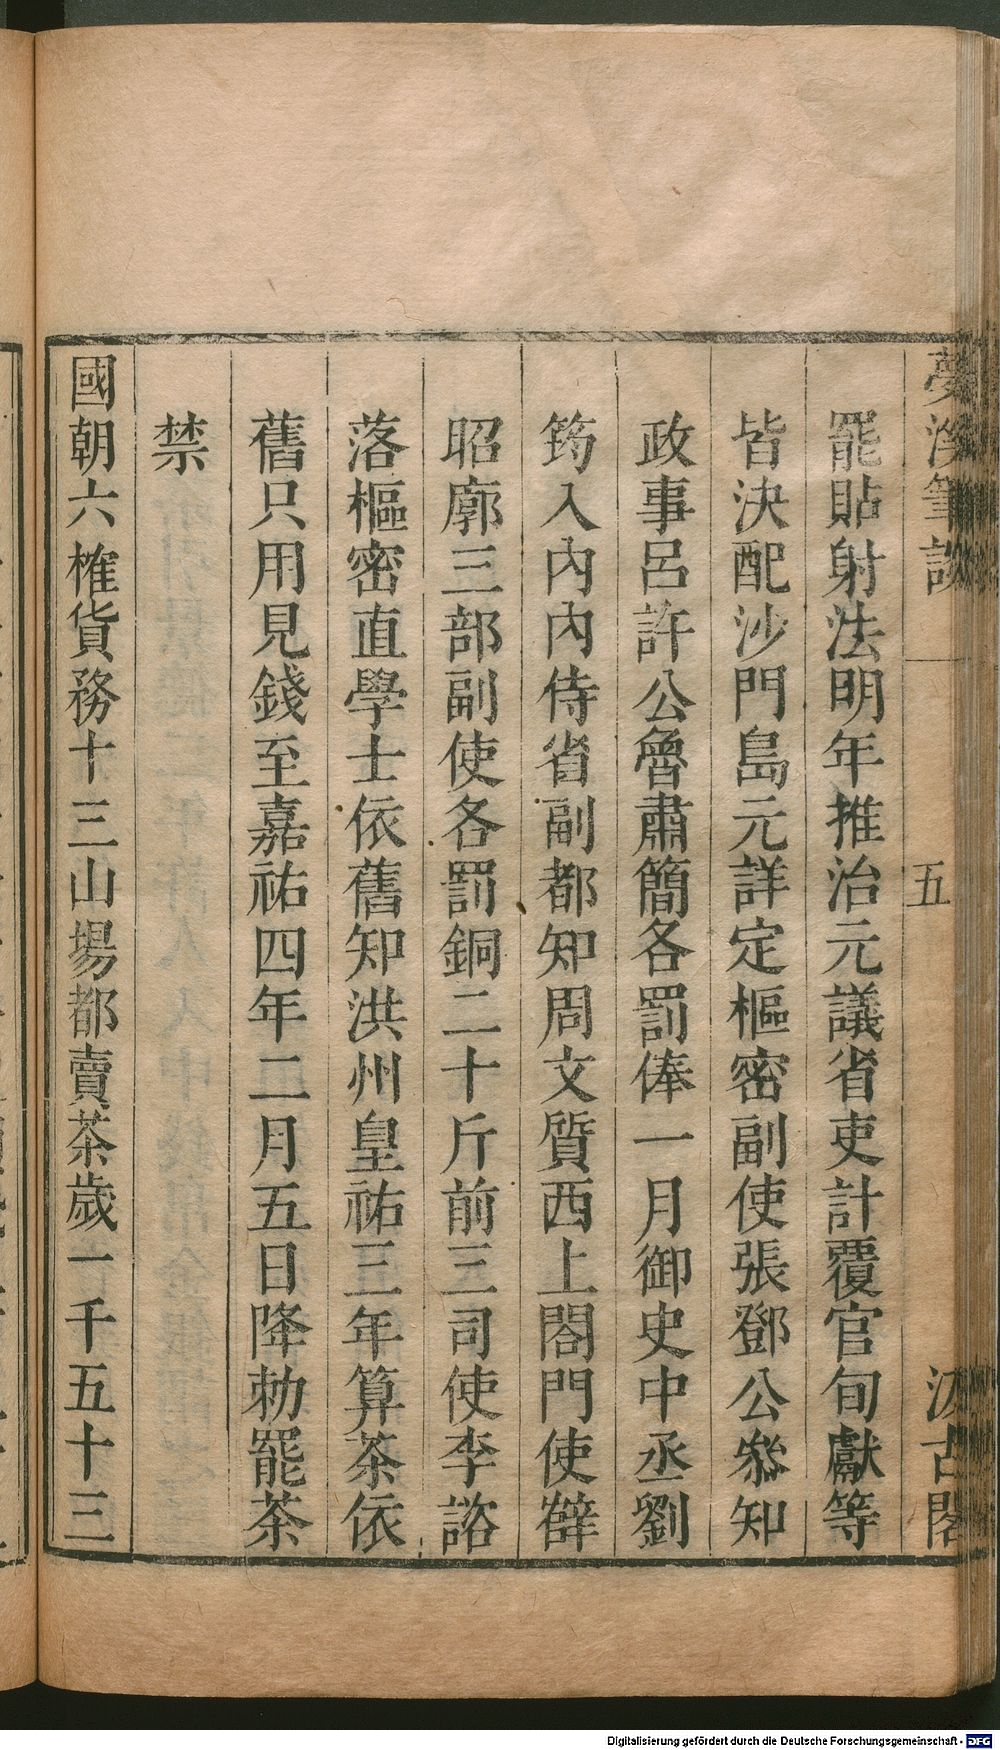 夢溪筆談 五 汲古閣
罷貼射法明年推治元議省吏計覆官旬獻等
皆決配沙門島元詳定樞密副使張鄧公叅知
政事呂許公魯肅簡各罰俸一月御史中丞劉
筠入內內侍省副都知周文質西上閤門使薛
昭廓三部副使各罰銅二十斤前三司使李諮
落樞密直學士依舊知洪州皇祐三年算茶依
舊只用見錢至嘉祐四年二月五日降勅罷茶
禁
國朝六榷貨務十三山場都賣茶歲一千五十三
Digitalisierung gefördert durch die Deutsche Forschungsgemeinschaft - DFG